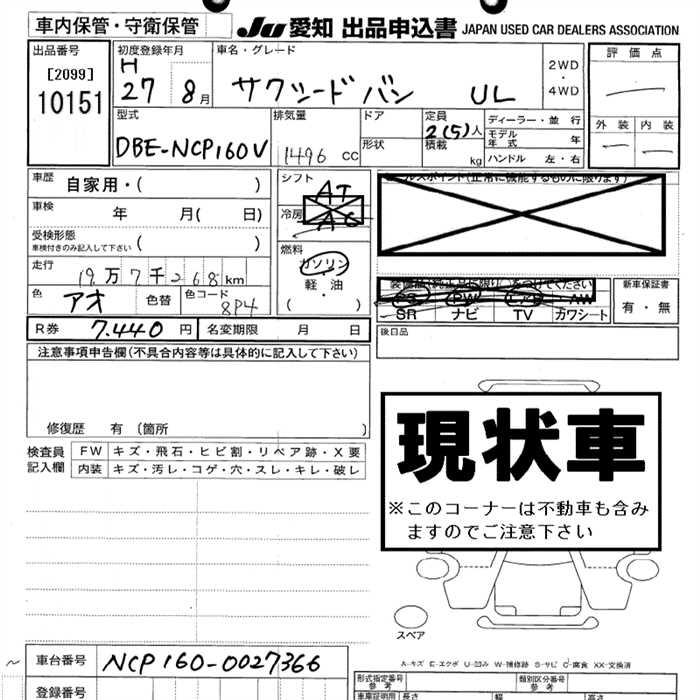 車内保管・守衛保管 JU 愛知 出品申込書 JAPAN USED CAR DEALERS ASSOCIATION
出品番号 初度登録年月 車名・グレード 評価点
[2099] H 2WD
10151 27 8月 サクシードバン UL ・
4WD
型式 排気量 ドア 定員 ディーラー・並行 外装 内装
DBE-NCP160V 1496 cc 形状 2(5)人 モデル年式 年
積載 kg ハンドル 左・右
車歴 自家用・( ) シフト AT セールスポイント(正常に機能するものに限ります)
車検 年 月( 日) 冷房 AC
受検形態
車検付きのみ記入して下さい ( ) 燃料
走行 19万7千268km ガソリン 装備品(純正品に限り○をつけてください) 新車保証書
・軽・油 PS PW エアB AW 有・無
色 アオ 色替 色コード 8P4 ( ・ ) SR ナビ TV カワシート
R券 7.440円 名変期限 月 日 後日品
注意事項申告欄(不具合内容等は具体的に記入して下さい)
修復歴 有 〔箇所 〕
現状車
※このコーナーは不動車も含み
ますのでご注意下さい
検査員 FW キズ・飛石・ヒビ割・リペア跡・X要
記入欄 内装 キズ・汚レ・コゲ・穴・スレ・キレ・破レ
スペア
A-キズ E-エクボ U-凹み W-補修跡 S-サビ C-腐食 XX-交換済
車台番号 NCP160-0027366
登録番号 形式指定番号 参考 類別区分番号 参考
車庫証明用 長さ 幅 高さ